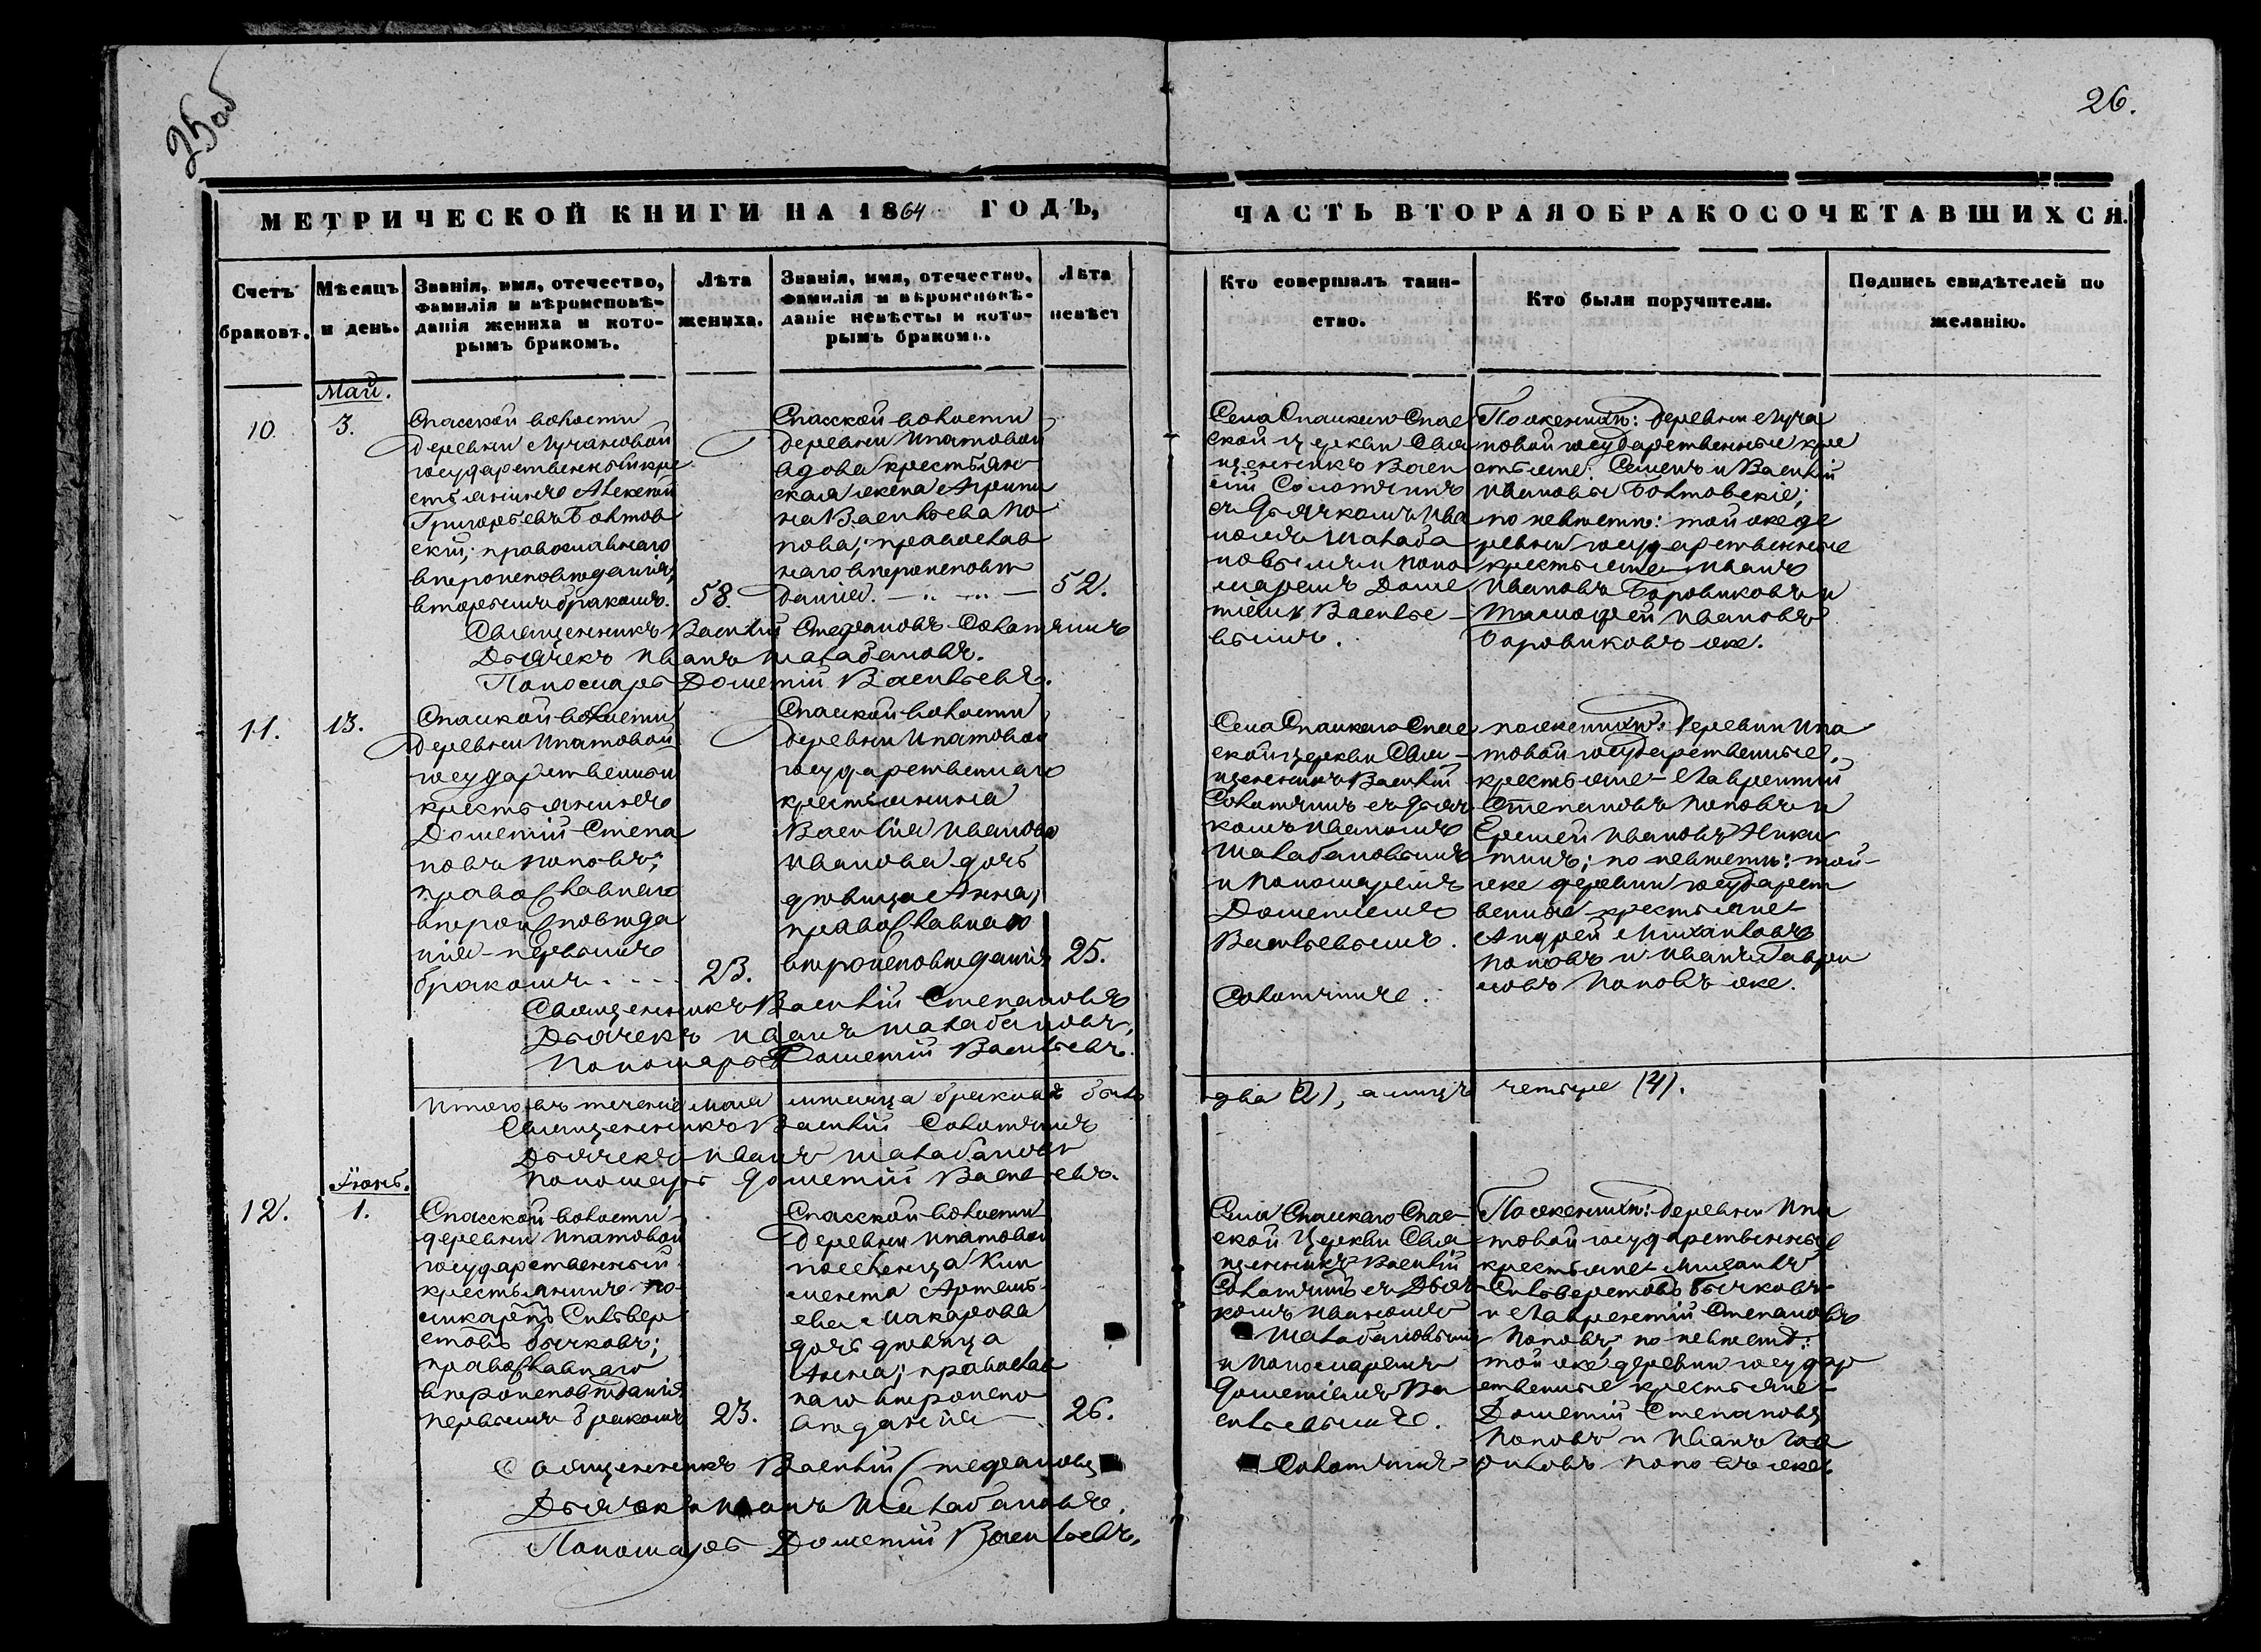 25об
26.
МЕТРИЧЕСКОЙ КНИГИ НА 1864 ГОДЪ,
ЧАСТЬ ВТОРАЯ О БРАКОСОЧЕТАВШИХСЯ.
Счетъ
браковъ.
Мѣсяцъ
и день.
Званія, имя, отечество,
фамилія и вѣроисповѣ-
данія жениха и кото-
рымъ бракомъ.
Лѣта
жениха.
Званія, имя, отечество,
фамилія и вѣроисповѣ-
даніе невѣсты и кото-
рымъ бракомъ.
Лѣта
невѣст
Кто совершалъ таин-
ство.
Кто были поручители.
Подпись свидѣтелей по
желанію.
Май.
10.
3.
Спасской волости
деревни Лучановой
государственный кре
стьянинъ Алексѣй
Григорьевъ Болтов
скій; православнаго
вѣроисповѣданія,
вторымъ бракомъ.
58.
Спасской волости
деревни Ипатовой
вдова крестьян
ская жена Агрипи
на Васильева По
пова; православ
наго вѣроисповѣ
данія.
52.
Села Спаскаго Спас
ской церкви Свя
щенникъ Васи
лій Солотчинъ
съ Дьячкомъ Ива
номъ Шалаба
новымъ и Поно
маремъ Доме
тіемъ Василье
вымъ.
По женихѣ: деревни Луча
новой государственные кре
стьяне: Семенъ и Василій
Ивановы Болтовскіе;
по невѣстѣ: той же де
ревни государственные
крестьяне Иванъ
Ивановъ Боровиковъ и
Тимофей Ивановъ
Боровиковъ же.
Священникъ Василій Стефановъ Солотчинъ
Дьячекъ Иванъ Шалабановъ.
Пономарь Дометій Васильевъ.
11.
13.
Спаской волости
деревни Ипатовой
государственный
крестьянинъ
Дометій Степа
новъ Поповъ;
православнаго
вѣроисповѣда
нія первымъ
бракомъ
23.
Спаской волости
деревни Ипатовой
государственнаго
крестьянина
Василія Иванова
Иванова дочь
дѣвица Анна,
православнаго
вѣроисповѣданія
25.
Села Спаскаго Спас
ской церкви Свя-
щенникъ Василій
Солотчинъ съ Дьяч
комъ Иваномъ
Шалабановымъ
и Пономаремъ
Дометіемъ
Васильевымъ.
Солотчинъ.
по женихѣ: деревни Ипа
товой государственные
крестьяне Лаврентій
Степановъ Поповъ и
Еремей Ивановъ Ники
тинъ; по невѣстѣ: той-
же деревни государст
венные крестьяне
Андрей Михайловъ
Поповъ и Иванъ Гаври
ловъ Поповъ же.
Священникъ Василій Степановъ
Дьячекъ Иванъ Шалабановъ,
Пономарь Дометій Васильевъ.
Итого въ теченіе Мая мѣсяца браковъ было
два (2), а лицъ четыре (4).
Священникъ Василій Солотчинъ
Дьячекъ Иванъ Шалабановъ
Пономарь Дометій Васильевъ.
Іюнь.
12.
1.
Спасской волости
деревни Ипатовой
государственный
крестьянинъ По
ликарпъ Сильвер
стовъ Бычковъ;
православнаго
вѣроисповѣданія
первымъ бракомъ
23.
Спасской волости
деревни Ипатовой
поселенца Кли
мента Артемь
ева Макарова
дочь дѣвица
Анна; православ
наго вѣроиспо
вѣданія
26.
Села Спаскаго Спас
ской Церкви Свя
щенникъ Василій
Солотчинъ съ Дьяч
комъ Иваномъ
Шалабановымъ
и Пономаремъ
Дометіемъ Ва
сильевымъ.
Солотчинъ
По женихѣ: деревни Ипа
товой государственные
крестьяне Михаилъ
Сильверстовъ Бычковъ
и Лаврентій Степановъ
Поповъ; по невѣстѣ:
той же деревни государ
ственные крестьяне
Дометій Степановъ
Поповъ и Иванъ Гав
риловъ Поповъ же.
Священникъ Василій Стефановъ
Дьячекъ Иванъ Шалабановъ.
Пономарь Дометій Васильевъ.